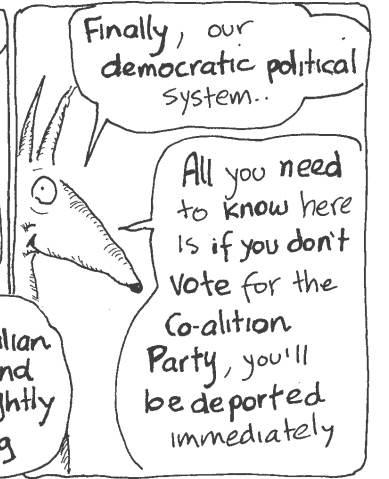 Finally, our
democratic political
system..
All you need
to know here
is if you don't
vote for the
Co-alition
Party, you'll
be deported
immediately